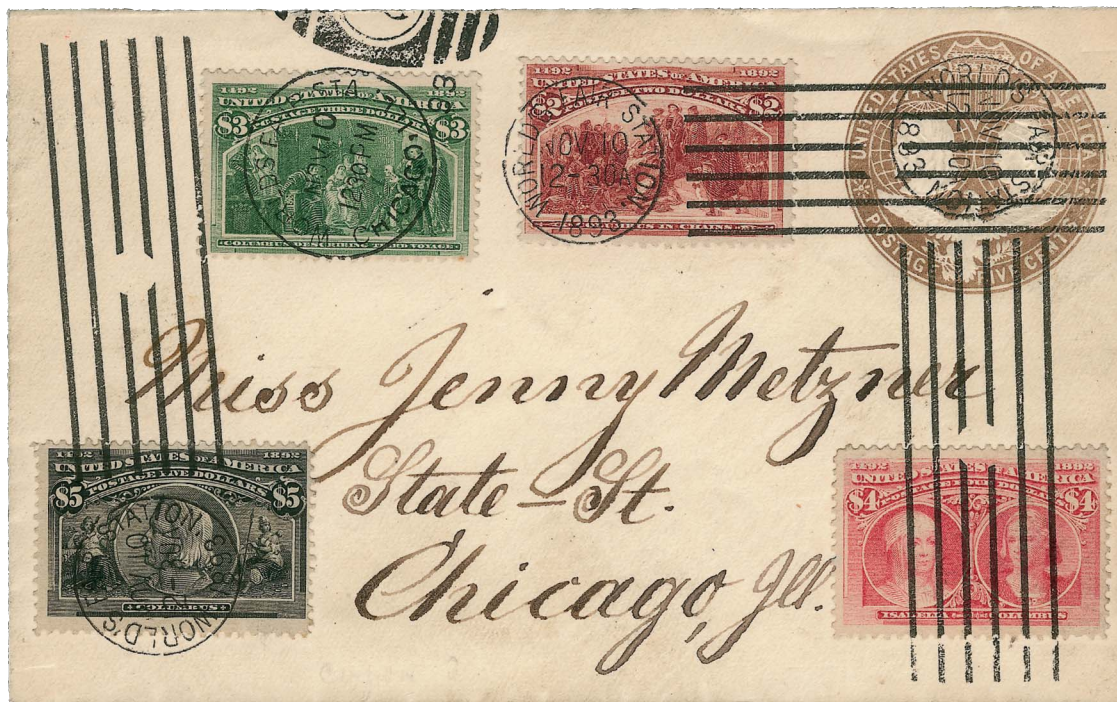 1492 1892
UNITED STATES OF AMERICA
POSTAGE THREE DOLLARS
$3 $3
COLUMBUS DESCRIBING THIRD VOYAGE
NOV 10
12 30 PM
CHICAGO, ILL.
1492 1892
UNITED STATES OF AMERICA
POSTAGE TWO DOLLARS
$2 $2
COLUMBUS IN CHAINS
WORLD'S FAIR STATION
NOV 10
2-30A
1893
UNITED STATES OF AMERICA
POSTAGE FIVE CENTS
WORLD'S STATION
1893
Miss Jenny Metzner
State-St.
Chicago, Ill.
1492 1892
UNITED STATES OF AMERICA
POSTAGE FIVE DOLLARS
$5 $5
COLUMBUS
WORLD'S FAIR STATION
1893
1492 1892
UNITED STATES OF AMERICA
POSTAGE FOUR DOLLARS
$4 $4
ISABELLA COLUMBUS